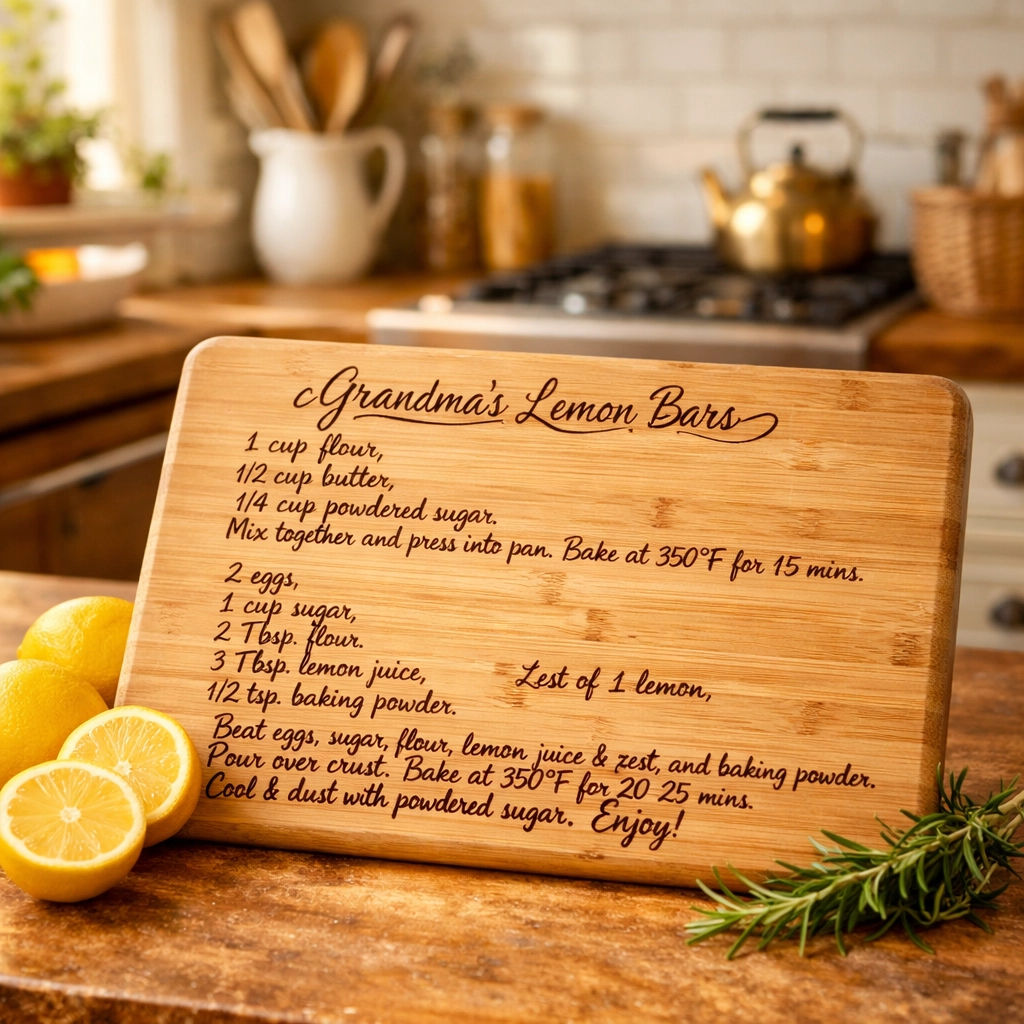 Grandma's Lemon Bars
1 cup flour,
1/2 cup butter,
1/4 cup powdered sugar.
Mix together and press into pan. Bake at 350°F for 15 mins.
2 eggs,
1 cup sugar,
2 Tbsp. flour.
3 Tbsp. lemon juice, Lest of 1 lemon,
1/2 tsp. baking powder.
Beat eggs, sugar, flour, lemon juice & zest, and baking powder.
Pour over crust. Bake at 350°F for 20 25 mins.
Cool & dust with powdered sugar. Enjoy!